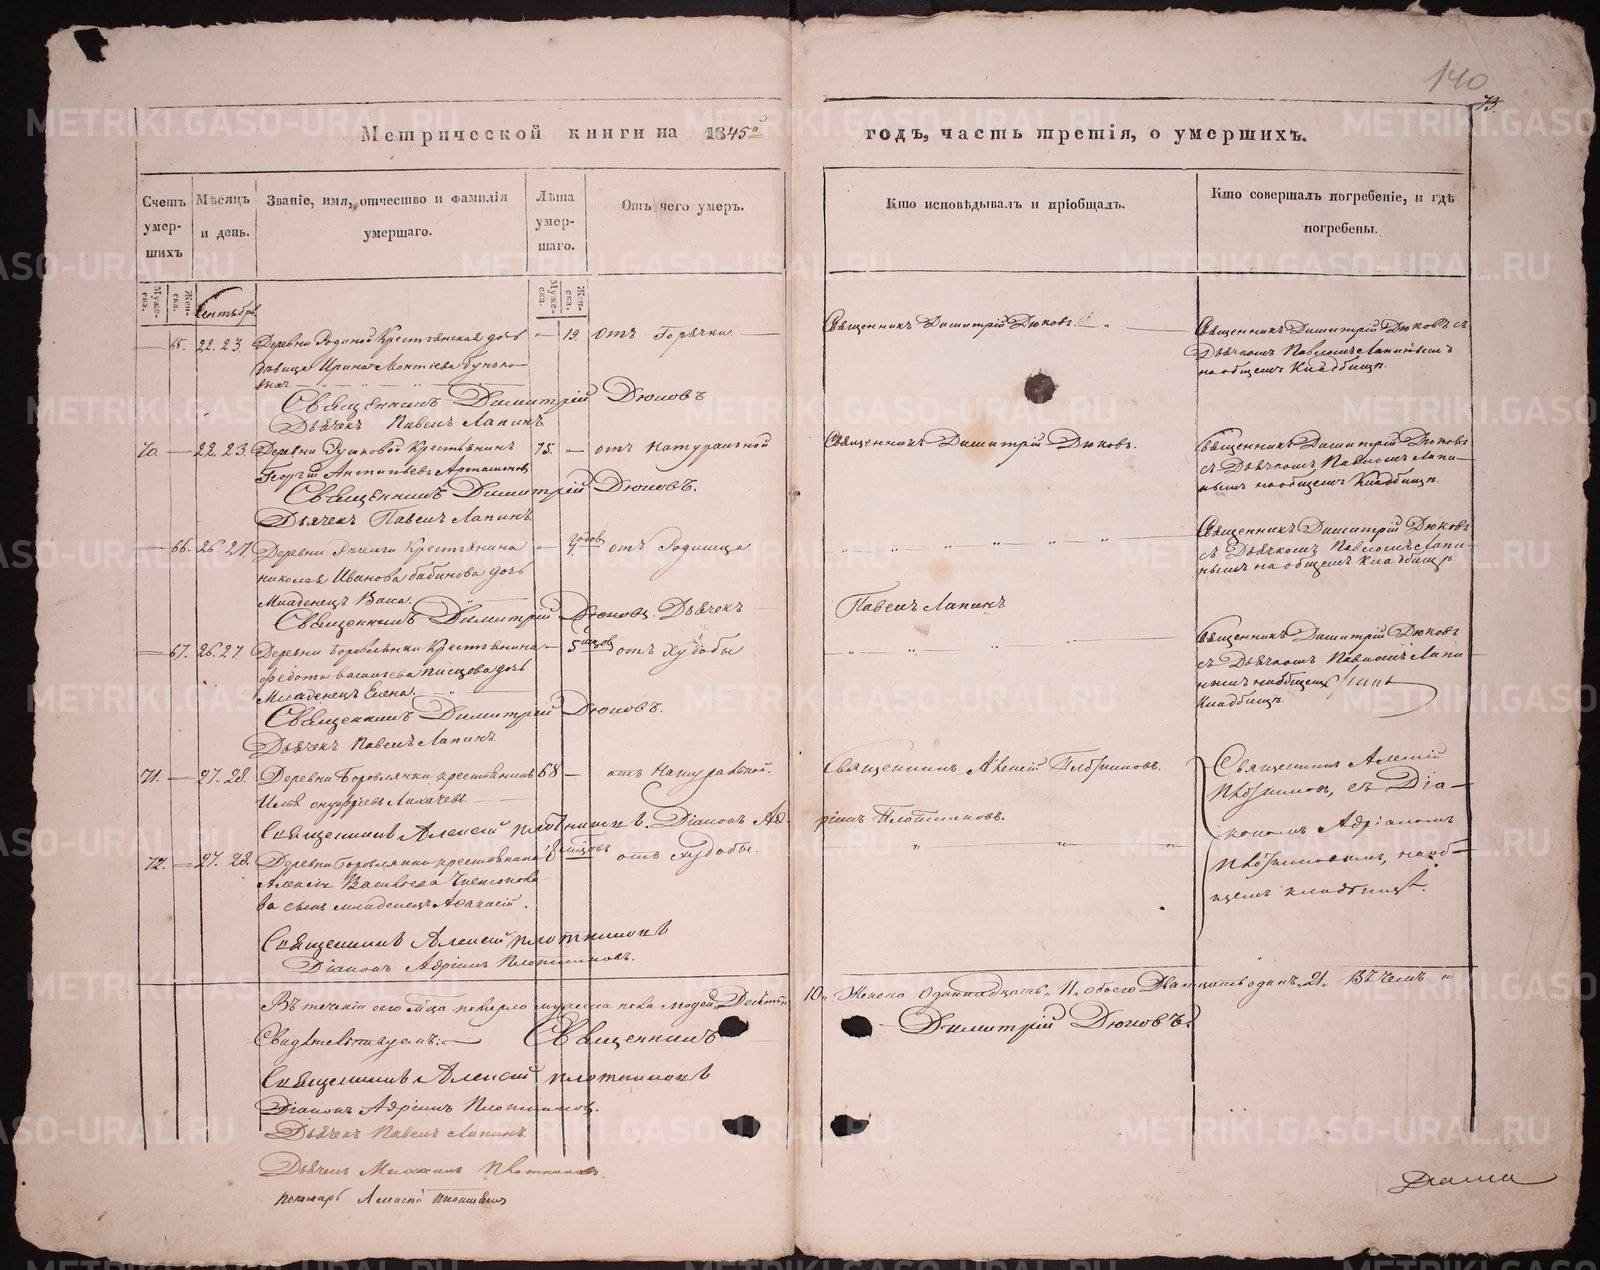 140
73
Метрической книги на 1845й
годъ, часть третія, о умершихъ.
Счетъ умер-шихъ
Мѣсяцъ и день.
Званіе, имя, отчество и фамилія умершаго.
Лѣта умер-шаго.
Отъ чего умеръ.
Кто исповѣдывалъ и пріобщалъ.
Кто совершалъ погребеніе, и гдѣ погребены.
Муже-ска.
Жен-ска.
Сентябрь
Муже-ска.
Жен-ска.
— 65. 22. 23. Деревни Крестьянская дочь — 19. отъ Горячки —
дѣвица Ирина Леонтіева
Священникъ Димитрій Дюковъ
Дьячекъ Павелъ Лапинъ
Священникъ Димитрій Дюковъ. — „ —
Священникъ Димитрій Дюковъ съ
Дьячкомъ Павломъ Лапинымъ
на общемъ Кладбищѣ.
70. — 22. 23. Деревни Крестьянинъ 75. — отъ Натуральной
Георгій Антипьевъ
Священникъ Димитрій Дюковъ.
Дьячекъ Павелъ Лапинъ
Священникъ Димитрій Дюковъ.
Священникъ Димитрій Дюковъ
съ Дьячкомъ Павломъ Лапи-
нымъ на общемъ Кладбищѣ.
— 66. 26. 27. Деревни Крестьянина — отъ Родимца
Николая Иванова Бабинова дочь
Младенецъ
Священникъ Димитрій Дюковъ. Дьячекъ
Павелъ Лапинъ
Священникъ Димитрій Дюковъ
съ Дьячкомъ Павломъ Лапи-
нымъ на общемъ кладбищѣ.
— 67. 26. 27 Деревни Боровлянки Крестьянина — 5 мцов отъ Худобы
Федота Васильева Писцова дочь
Младенецъ Елена.
Священникъ Димитрій Дюковъ.
Дьячекъ Павелъ Лапинъ.
Священникъ Димитрій Дюковъ
съ Дьячкомъ Павломъ Лапи
нымъ на общемъ
Кладбищѣ.
71. — 27. 28. Деревни Боровлянки крестьянинъ 68 — отъ Натуральной.
Илья Онуфріевъ Лихачевъ.
Священникъ Алексій Плотниковъ. Діаконъ Ад-
ріанъ Плотниковъ.
Священникъ Алексій Плотниковъ.
Священникъ Алексій
Плотниковъ, съ Діа-
кономъ Адріаномъ
Плотниковымъ, на об-
щемъ кладбищѣ.
72. — 27. 28. Деревни Боровлянки крестьянина 8 мцовъ отъ худобы.
Алексія Васильева
ва сынъ младенецъ Афанасій.
Священникъ Алексій Плотниковъ
Діаконъ Адріанъ Плотниковъ.
Въ теченіи сего м͠ца померло мужеска пола людей „Десять„
10„ Женска Одиннадцать„ 11„ обоего Двадцать одинъ „21„ Въ чемъ „
Свидѣтельствуемъ: — Священникъ
Димитрій Дюковъ.
Священникъ Алексій Плотниковъ
Діаконъ Адріанъ Плотниковъ.
Дьячекъ Павелъ Лапинъ.
Дьячекъ Плотниковъ.
пономарь Алексій Плотниковъ
METRIKI.GASO-URAL.RU